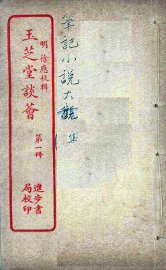 筆記小說大觀 集
明 徐應秋輯
玉芝堂談薈
第一冊
進步書
局校印